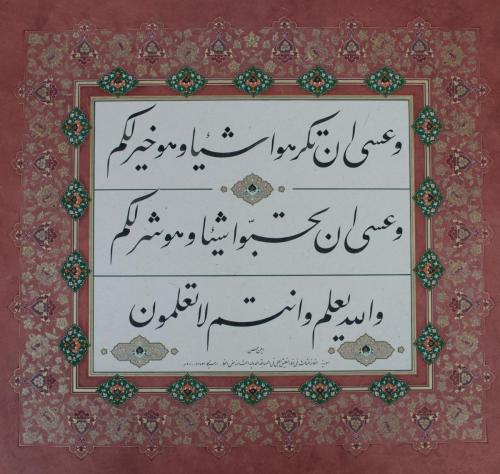 وعسى ان تكرهوا شيئا وهو خير لكم
وعسى ان تحبّوا شيئا وهو شر لكم
والله يعلم وانتم لا تعلمون